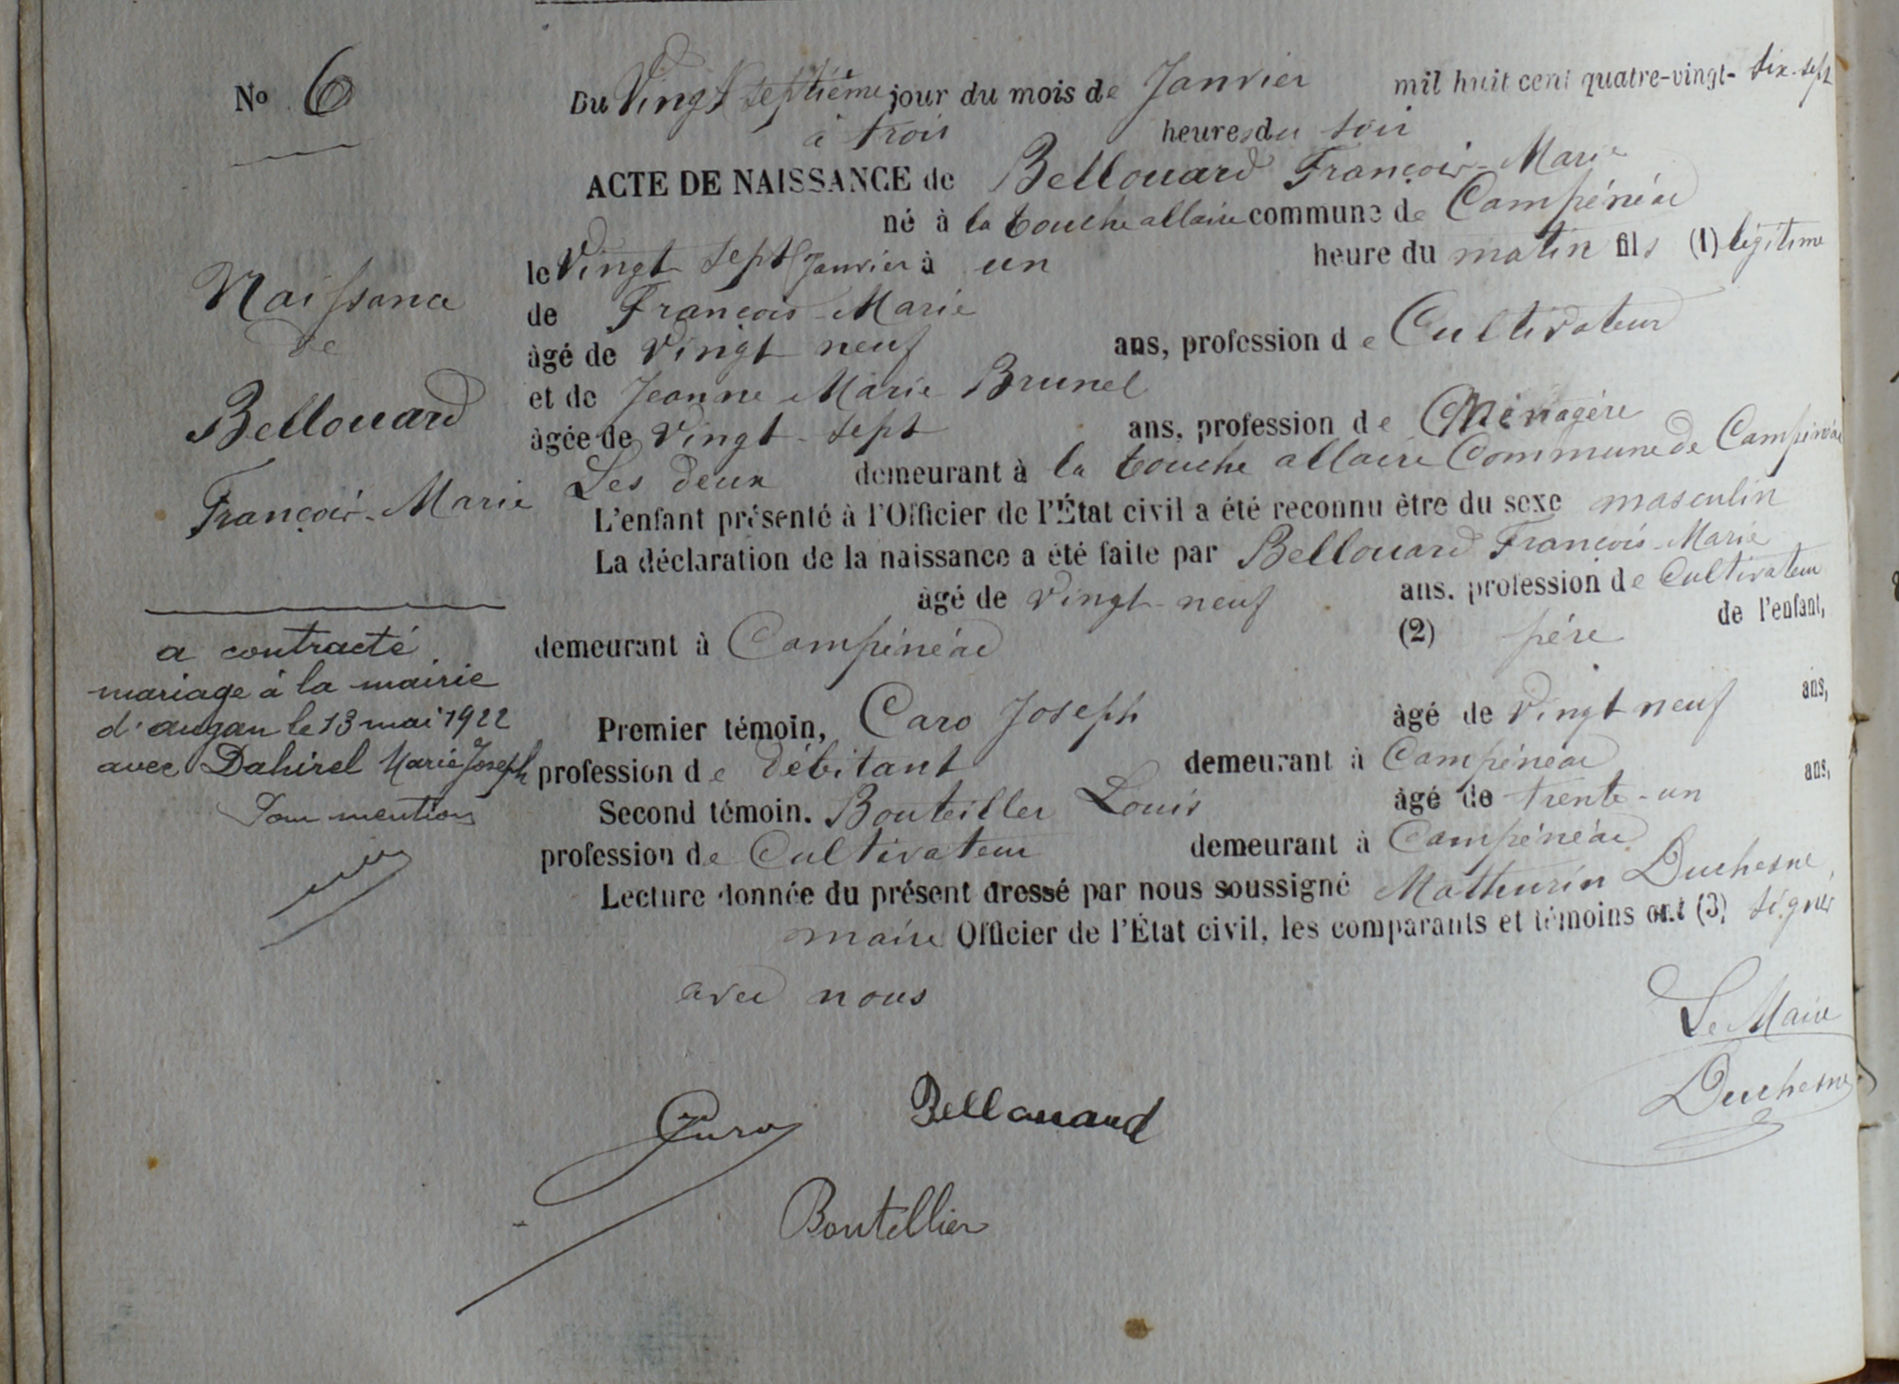 No 6
Naissance
de
Bellouard
François-Marie
a contracté
mariage à la mairie
d'augan le 13 mai 1922
avec Dahirel Marie Joseph
Pour mention
Du Vingt septième jour du mois de Janvier mil huit cent quatre-vingt-dix-sept
à trois heures du soir
ACTE DE NAISSANCE de Bellouard François-Marie
né à la touche allaire commune de Campénéac
le Vingt sept Janvier à un heure du matin fils (1) légitime
de François-Marie
âgé de vingt neuf ans, profession de Cultivateur
et de Jeanne Marie Brunel
âgée de vingt-sept ans, profession de Ménagère
Les deux demeurant à la touche allaire Commune de Campénéac
L'enfant présenté à l'Officier de l'État civil a été reconnu être du sexe masculin
La déclaration de la naissance a été faite par Bellouard François-Marie
âgé de vingt-neuf ans, profession de Cultivateur
demeurant à Campénéac (2) père de l'enfant,
Premier témoin, Caro Joseph âgé de vingt neuf ans,
profession de débitant demeurant à Campénéac
Second témoin. Bouteiller Louis âgé de trente-un ans,
profession de Cultivateur demeurant à Campénéac
Lecture donnée du présent dressé par nous soussigné Mathurin Duchesne
maire Officier de l'État civil, les comparants et témoins ont (3) signés
avec nous
Le Maire
Duchesne
Caro Bellouard
Boutellier